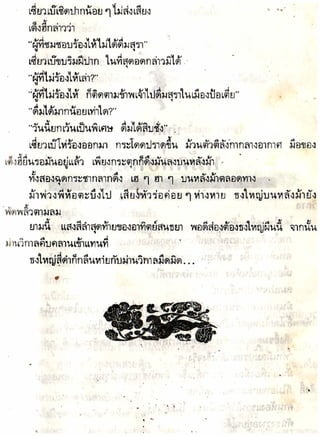 เซี่ยวเป้เชิดปากน้อย ๆ ไม่ส่งเสียง
เต็งฮี้กล่าวว่า
"ผู้ที่ชมชอบร้องไห้ไม่ได้ดื่มสุรา"
เซี่ยวเป้ขบริมฝีปาก ในที่สุดอดกล่าวมิได้
"ผู้ที่ไม่ร้องไห้เล่า?"
"ผู้ที่ไม่ร้องไห้ ก็ติดตามข้าพเจ้าไปดื่มสุราในเมืองป้อเตี่ย"
"ดื่มได้มากน้อยเท่าใด?"
"วันนี้ยกเว้นเป็นพิเศษ ดื่มได้สิบชั่ง"
เซี่ยวเป้โห่ร้องออกมา กระโดดปราดขึ้น ม้วนตัวตีลังกากลางอากาศ มือของ
เต็งฮี้ยื่นรอมันอยู่แล้ว เพียงกระตุกก็ดึงมันลงบนหลังม้า
ทั้งสองฉุดกระชากลากดึง เฮ ๆ ฮา ๆ บนหลังม้าตลอดทาง
ม้าพ่วงพีห้อตะบึงไป เสียงหัวร่อค่อย ๆ ห่างหาย ธงใหญ่บนหลังม้ายัง
พัดพลิ้วตามลม
ยามนี้ แสงสีลำสุดท้ายของอาทิตย์สนธยา พอดีส่องต้องธงใหญ่ผืนนี้ จากนั้น
ม่านวิกาลคืบคลานเข้าแทนที่
ธงใหญ่สีดำก็กลืนหายกับม่านวิกาลมืดมิด...